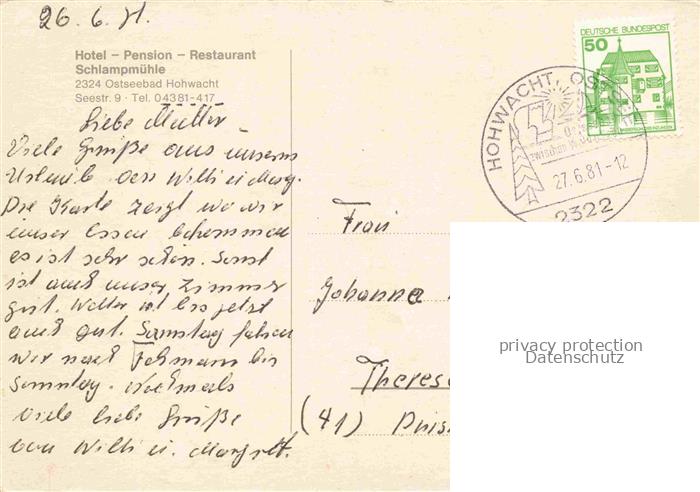 26.6.81.
Hotel – Pension – Restaurant
Schlampmühle
2324 Ostseebad Hohwacht
Seestr. 9 · Tel. 04381-417
Liebe Mutter
Viele Grüße aus unserem
Urlaub von Willi u. Marg.
Die Karte zeigt wo wir
unser Essen bekommen
es ist sehr schön. Sonst
ist auch unser Zimmer
gut. Wetter ist bis jetzt
auch gut. Samstag fahren
wir nach Fehmarn bis
Sonntag. Nochmals
viele liebe Grüße
von Willi u. Margrett.
DEUTSCHE BUNDESPOST
50
HOHWACHT, OSTSEE
27.6.81-12
2322
Frau
Johanna
Therese
(41) Duis
privacy protection
Datenschutz